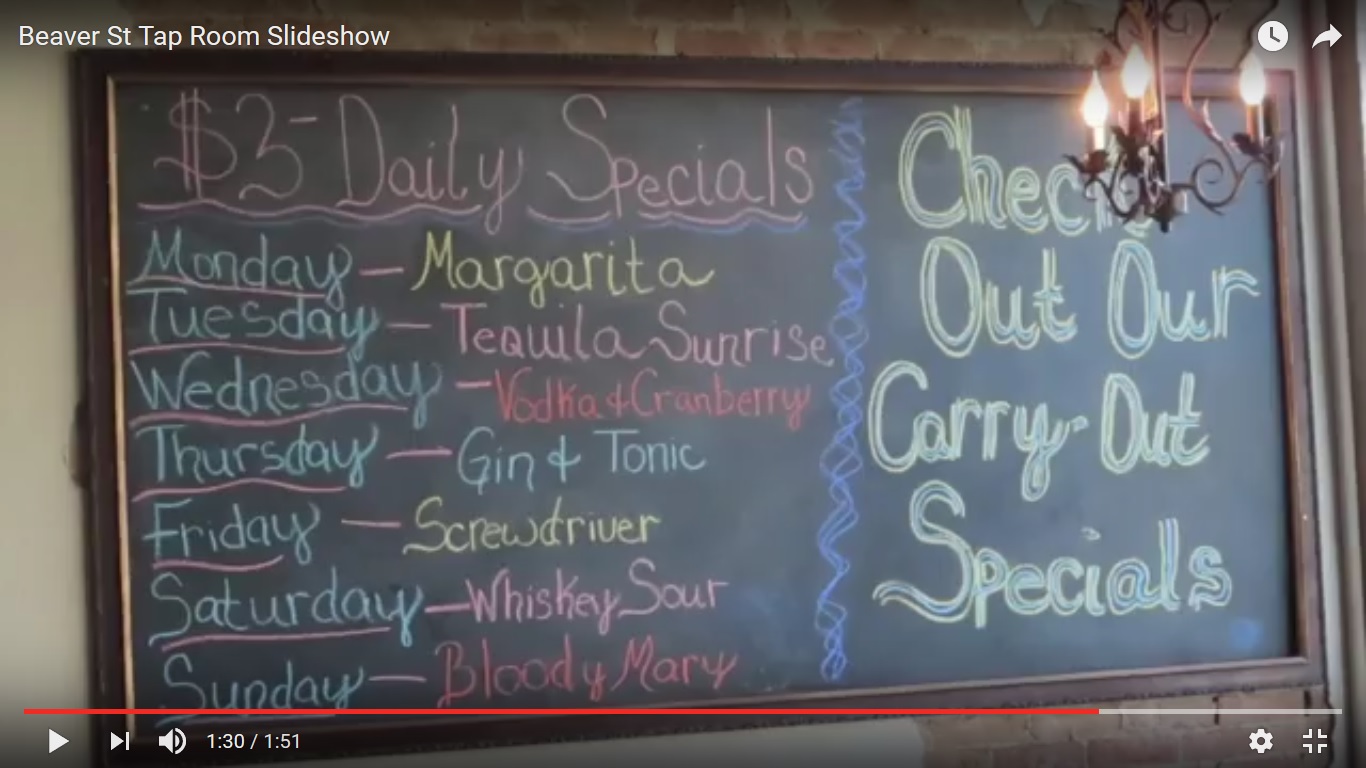 Beaver St Tap Room Slideshow
$3- Daily Specials
Monday - Margarita
Tuesday - Tequila Sunrise
Wednesday - Vodka & Cranberry
Thursday - Gin & Tonic
Friday - Screwdriver
Saturday - Whiskey Sour
Sunday - Bloody Mary
Check
Out Our
Carry-Out
Specials
1:30 / 1:51